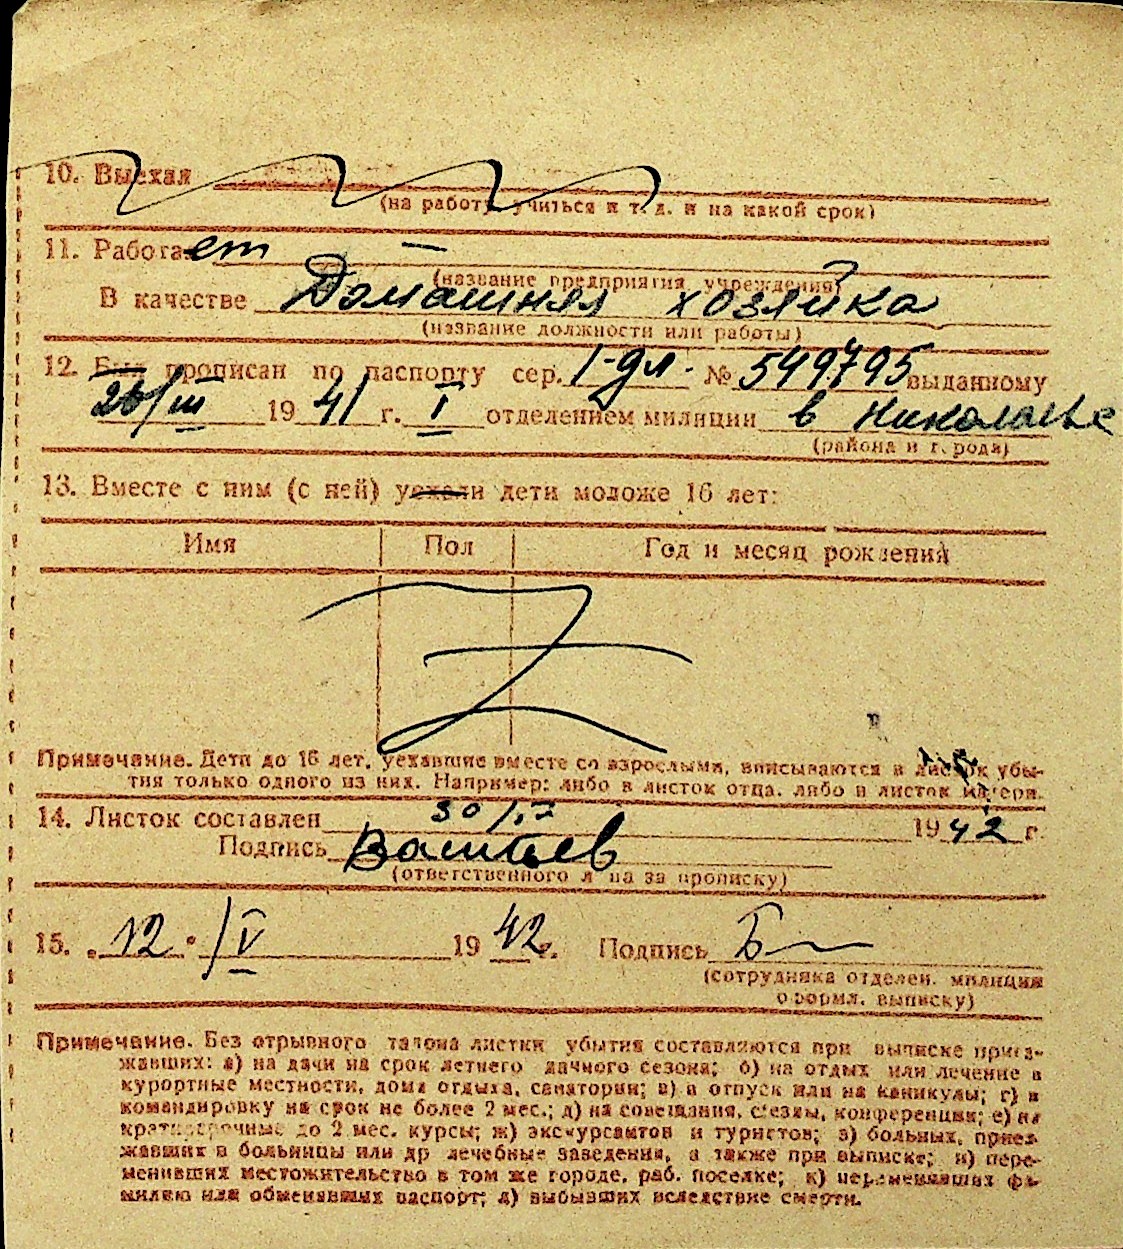 10. Выехал
(на работу, учиться и т. д. и на какой срок)
11. Работает —
(название предприятия, учреждения)
В качестве Домашняя хозяйка
(название должности или работы)
12. Был прописан по паспорту сер. № 549795 выданному
26/III 1941 г. I отделением милиции в Николаеве
(района и города)
13. Вместе с ним (с ней) уехали дети моложе 16 лет:
Имя Пол Год и месяц рождения
Примечание. Дети до 16 лет, уехавшие вместе со взрослыми, вписываются в листок убы-
тия только одного из них. Например: либо в листок отца, либо в листок матери.
14. Листок составлен 30/IV 1942 г.
Подпись
(ответственного лица за прописку)
15. „12" /V 1942 г. Подпись
(сотрудника отделен. милиции
оформл. выписку)
Примечание. Без отрывного талона листки убытия составляются при выписке приез-
жавших: а) на дачи на срок летнего дачного сезона; б) на отдых или лечение в
курортные местности, дома отдыха, санатории; в) в отпуск или на каникулы; г) в
командировку на срок не более 2 мес.; д) на совещания, съезды, конференции; е) на
краткосрочные до 2 мес. курсы; ж) экскурсантов и туристов; з) больных, приез-
жавших в больницы или др лечебные заведения, а также при выписке; и) пере-
менивших местожительство в том же городе, раб. поселке; к) переменивших фа-
милию или обменявших паспорт; л) выбывших вследствие смерти.